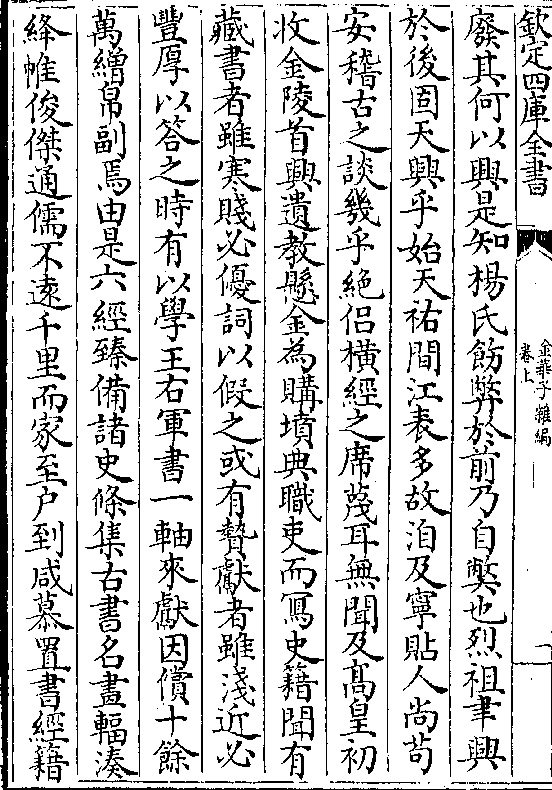 欽定四庫全書
金華子雜編
卷上
廢其何以興是知楊氏飭弊於前乃自弊也烈祖聿興
於後固天興乎始天祐間江表多故洎及寧貼人尚苟
安稽古之談幾乎絕侣橫經之席蔑耳無聞及髙皇初
收金陵首興遺教懸金為購墳典職吏而冩史籍聞有
藏書者雖寒賤必優詞以假之或有贄獻者雖淺近必
豐厚以答之時有以學王右軍書一軸來獻因償十餘
萬繒帛副焉由是六經臻備諸史條集古書名畫輻湊
絳帷俊傑通儒不遠千里而家至户到咸慕置書經籍